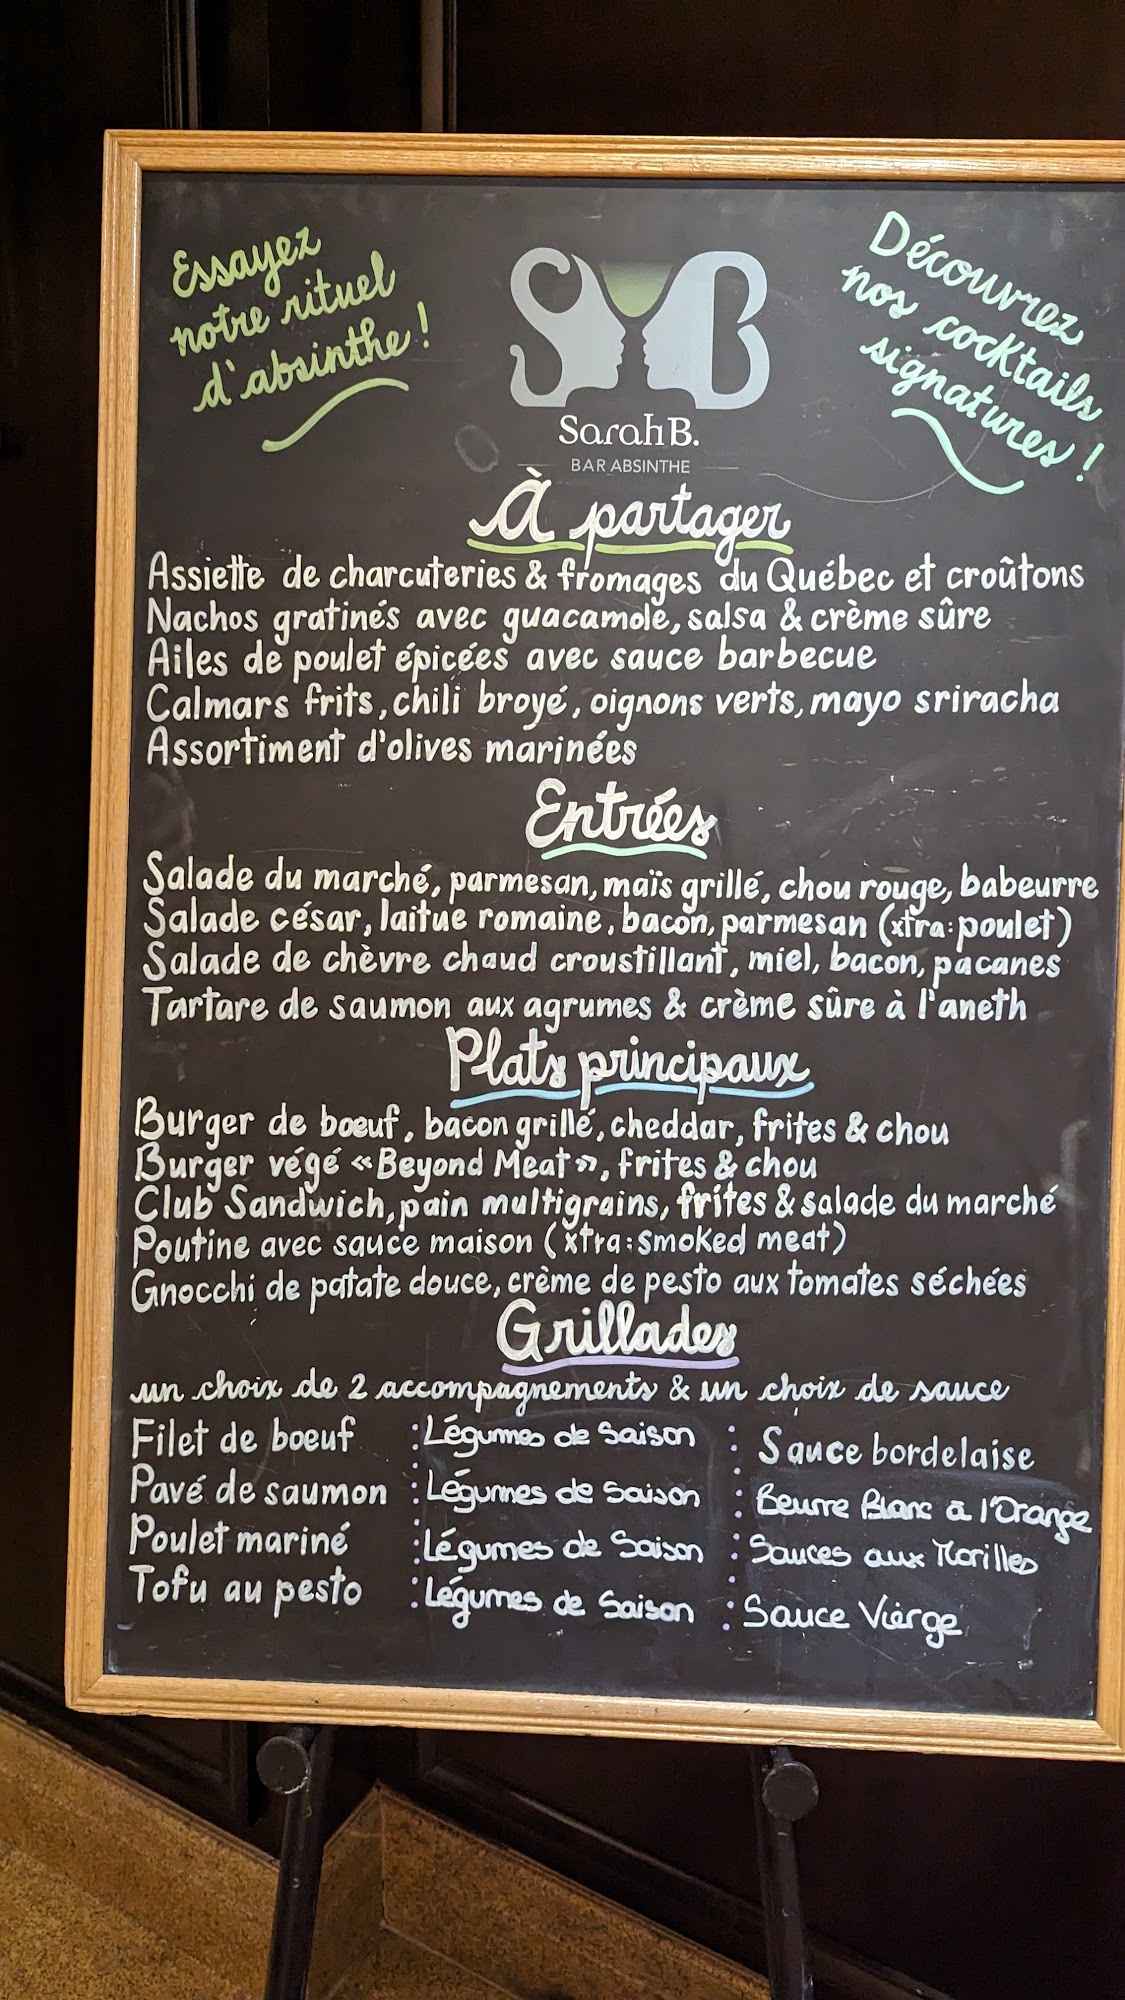 Essayez
notre rituel
d'absinthe!
Découvrez
nos cocktails
signatures!
SB
Sarah B.
BAR ABSINTHE
À partager
Assiette de charcuteries & fromages du Québec et croûtons
Nachos gratinés avec guacamole, salsa & crème sûre
Ailes de poulet épicées avec sauce barbecue
Calmars frits, chili broyé, oignons verts, mayo sriracha
Assortiment d'olives marinées
Entrées
Salade du marché, parmesan, maïs grillé, chou rouge, babeurre
Salade césar, laitue romaine, bacon, parmesan (xtra: poulet)
Salade de chèvre chaud croustillant, miel, bacon, pacanes
Tartare de saumon aux agrumes & crème sûre à l'aneth
Plats principaux
Burger de boeuf, bacon grillé, cheddar, frites & chou
Burger végé «Beyond Meat», frites & chou
Club Sandwich, pain multigrains, frites & salade du marché
Poutine avec sauce maison (xtra: smoked meat)
Gnocchi de patate douce, crème de pesto aux tomates séchées
Grillades
un choix de 2 accompagnements & un choix de sauce
Filet de boeuf : Légumes de Saison : Sauce bordelaise
Pavé de saumon : Légumes de Saison : Beurre Blanc à l'Orange
Poulet mariné : Légumes de Saison : Sauces aux Morilles
Tofu au pesto : Légumes de Saison : Sauce Vierge